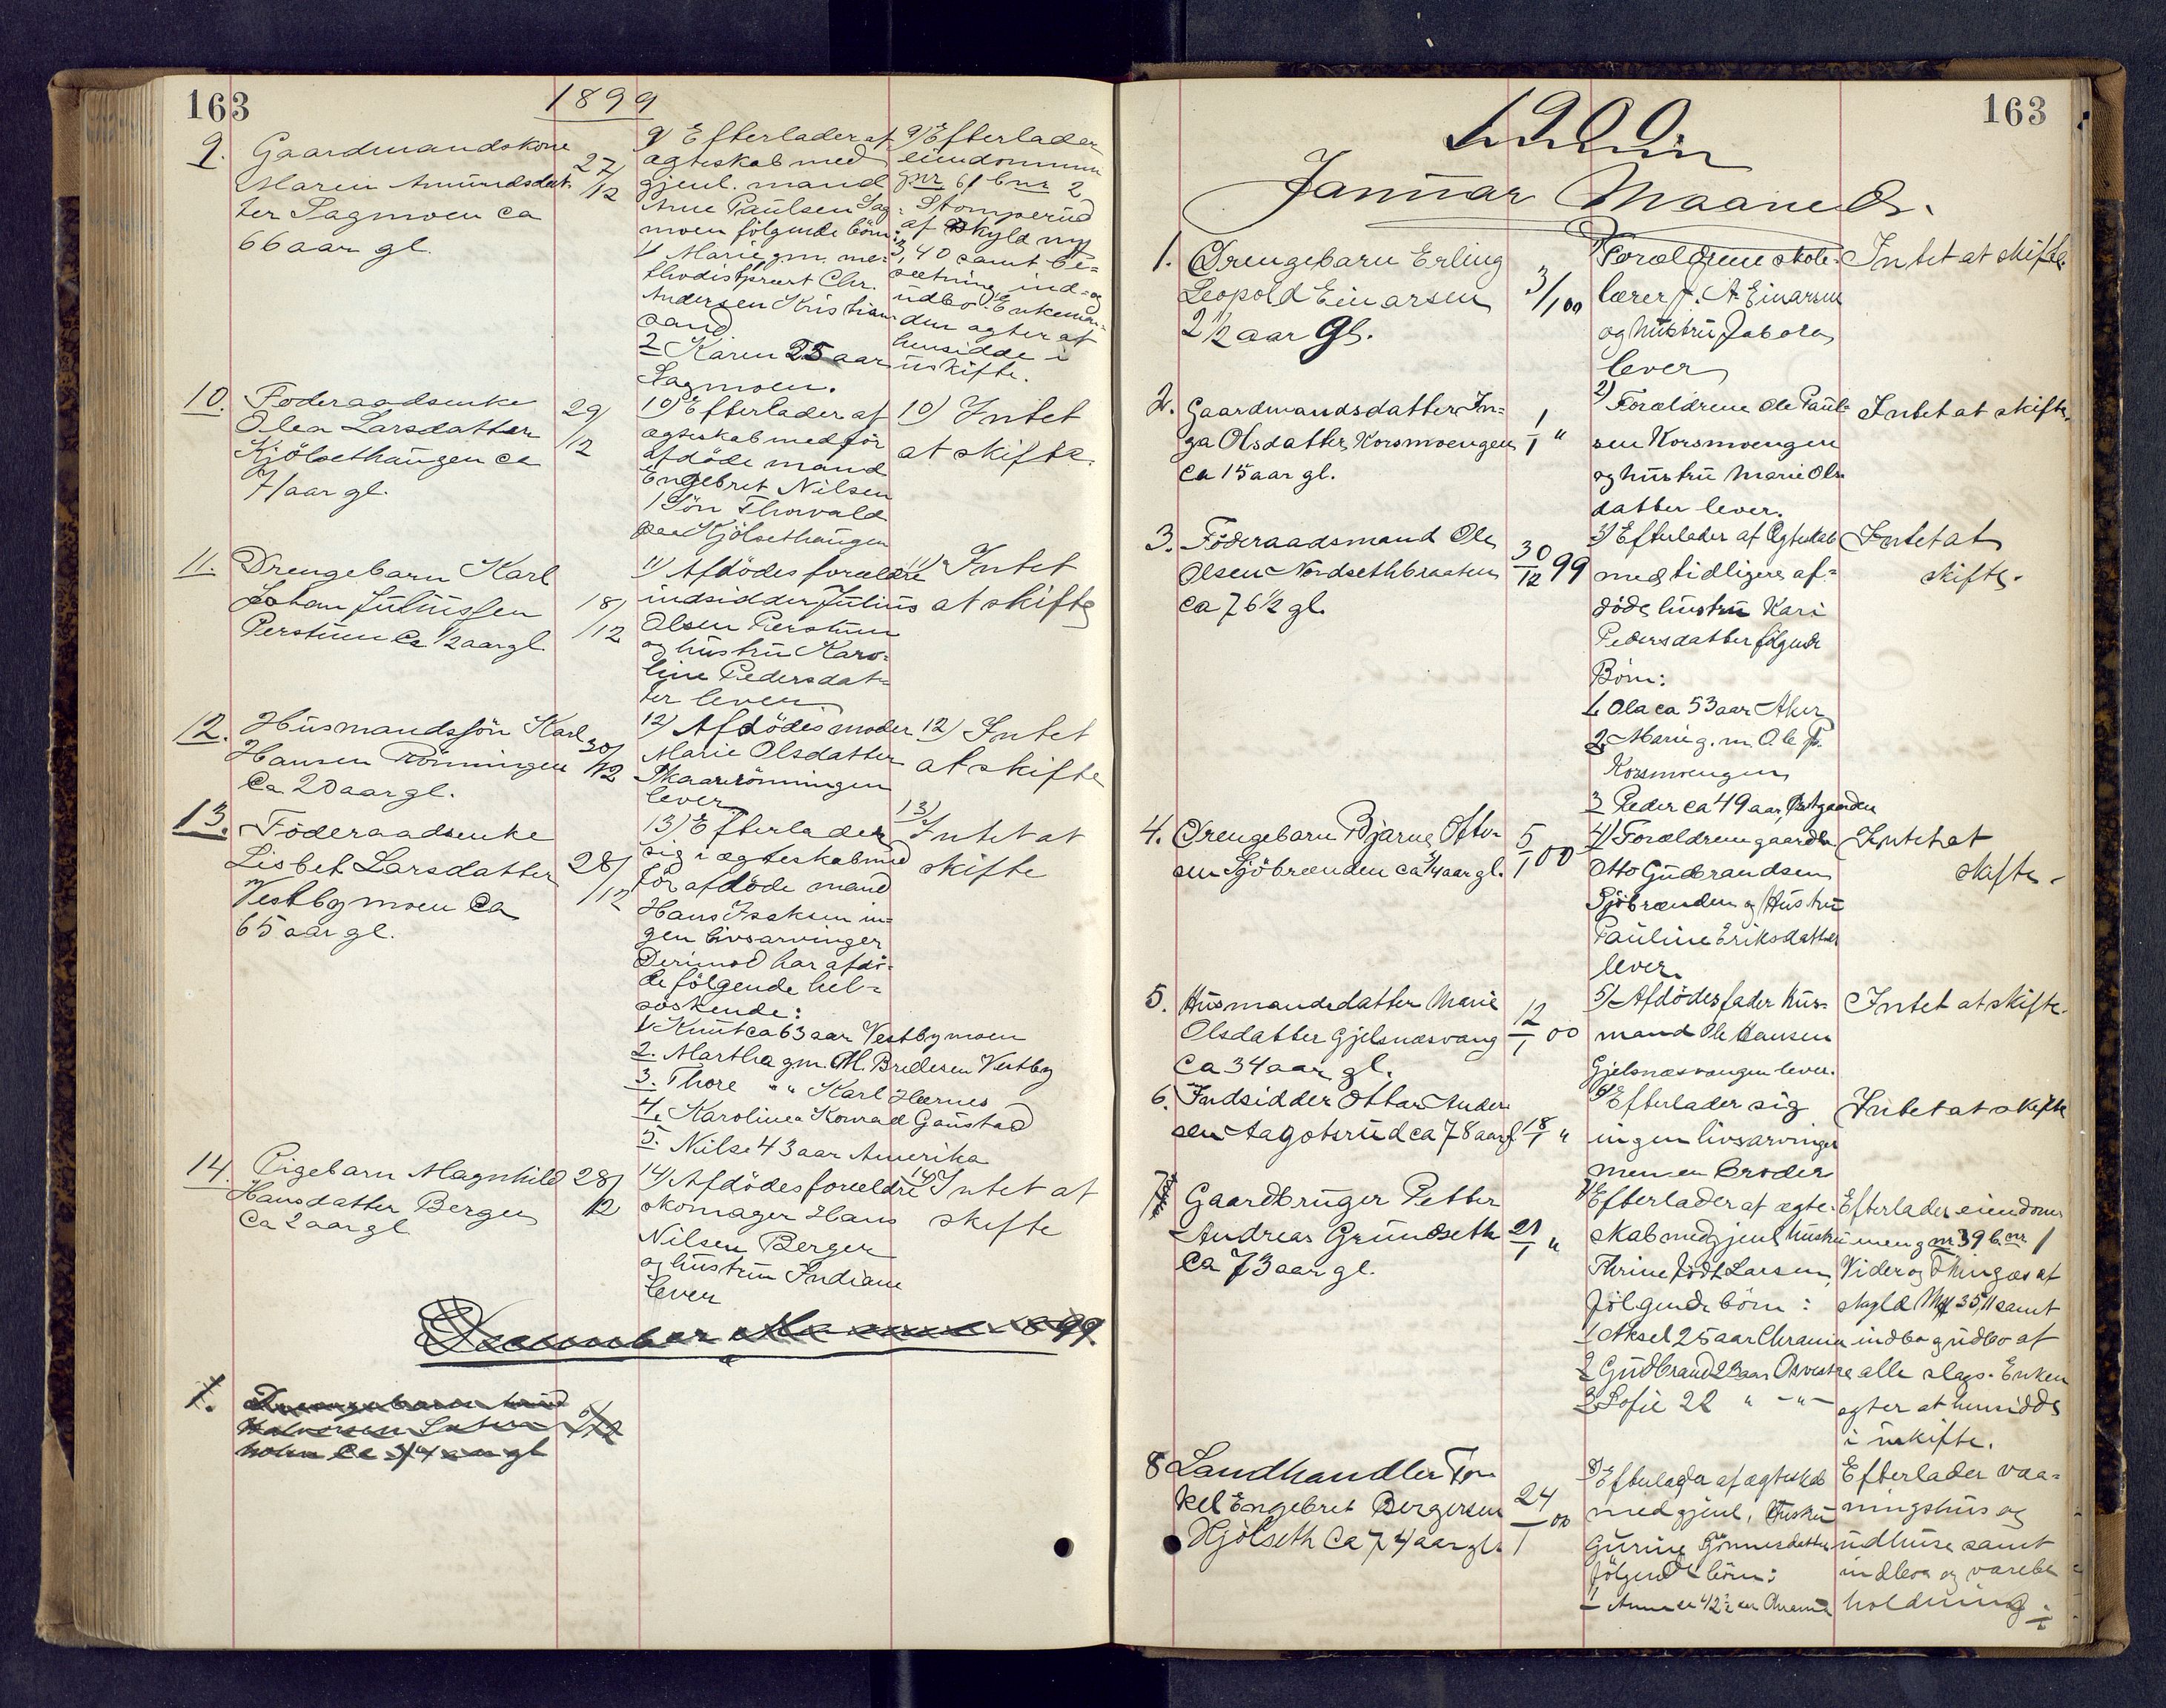 163
1899
9. Gaardmandskone
Maren Amundsdat-
ter Sagmoen ca
66 aar gl.
27/12
9) Efterlader af
ægteskab med
gjenl. mand
Arne Paulsen Sag-
moen følgende børn:
1 Marie gm. me-
thodistpræst Chr.
Andersen Kristian-
sand
2 Karen 25 aar
Sagmoen.
9) Efterlader
eiendommen
gnr 61 bnr 2
Stomperud
af skyld my
3,40 samt be-
sætning ind- og
udbo. Enkeman-
den agter at
hensidde i
uskifte.
10. Føderaadsenke
Olea Larsdatter
Kjölsethaugen ca
71 aar gl.
29/12
10) Efterlader af
ægteskab med før
afdöde mand
Engebret Nilsen
1 Sön Thorvald
paa Kjölsethaugen
10) Intet
at skifte.
11. Drengebarn Karl
Johan Juliussen
Perstuen ca 1/2 aar gl.
18/12
11) Afdödes forældre
indsidder Julius
Olsen Perstuen
og hustru Karo-
line Pedersdat-
ter lever
11) Intet
at skifte
12. Husmandssön Karl
Hansen Rönningen
ca 20 aar gl.
30/12
12) Afdödes moder
Marie Olsdatter
Skaarrönningen
lever
12) Intet
at skifte
13. Föderaadsenke
Lisbet Larsdatter
Vestbymoen ca
65 aar gl.
28/12
13) Efterlader
sig i ægteskab med
för afdöde mand
Hans Isaksen in-
gen livsarvinger
Derimod har afdö-
de fölgende hel-
söskende:
1 Knut ca 63 aar Vestbymoen
2. Martha gm. M. Bredesen Vestby
3. Thore " " Karl Hernes
4. Karoline Konrad Gaustad
5. Nils 43 aar Amerika
13) Intet at
skifte
14. Pigebarn Magnhild
Hansdatter Berger
ca 2 aar gl
28/12
14) Afdödes forældre
skomager Hans
Nilsen Berger
og hustru Indiane
lever
14) Intet at
skifte
December 99
1. Drengebarn
ca 3/4 aar gl
163
1900.
Januar Maaned.
1. Drengebarn Erling
Leopold Einarsen
2 1/2 aar gl.
3/1 00
1) Forældrene skole-
lærer J. A. Einarsen
og hustru Jabola
lever
Intet at skifte.
2. Gaardmandsdatter In-
ga Olsdatter Korsmoengen
ca 15 aar gl.
1/1 "
2) Forældrene Ole Paul-
sen Korsmoengen
og hustru Marie Ols-
datter lever.
Intet at skifte.
3. Föderaadsmand Ole
Olsen Nordsethbraaten
ca 76 1/2 gl.
30/12 99
3) Efterlader af Ægteskab
med tidligere af-
döde hustru Kari
Pedersdatter fölgende
Börn:
1. Ola ca 53 aar Aker
2. Marie g. m. Ole P.
Korsmoengen
3 Peder ca 49 aar Prestgaarden
Intet at
skifte.
4. Drengebarn Bjarne Otto-
sen Sjöbrænden ca 3/4 aar gl.
5/1 00
4) Forældrene gaardbr.
Otto Gudbrandsen
Sjöbrænden og Hustru
Pauline Eriksdatter
lever.
Intet at
skifte.
5. Husmandsdatter Marie
Olsdatter Gjelsnæsvang
ca 34 aar gl.
12/1 00
5) Afdödes fader Hus-
mand Ole Hansen
Gjelsnæsvangen lever.
Intet at skifte.
6. Indsidder Ottar Ander-
sen Aagotsrud ca 78 aar gl
18/1 "
6) Efterlader sig
ingen livsarvinger
men en broder
Intet at skifte
7. Gaardbruger Petter
Andreas Grundseth
ca 73 aar gl.
21/1 "
7) Efterlader af ægte-
skab med gjenl. hustru
Thrine födt Larsen,
fölgende börn:
1 Aksel 25 aar Chrania
2 Gudbrand 23 aar Opvestre
3 Sofie 22 " - " -
Efterlader eiendom-
men gnr 39 bnr 1
Vider og Thingæs af
skyld My 35,11 samt
indbo og udbo af
alle slags. Enken
agter at hensidde
i uskifte.
8 Landhandler Tor-
kel Engebret Bergersen
Hjölseth ca 74 aar gl.
24/1 00
8) Efterlader af ægteskab
med gjenl. Hustru
Gurine Gunnesdatter
fölgende börn:
1 Anne ca 42 1/2 aar Chrania
Efterlader vaa-
ningshus og
udhuse samt
indbo og varebe-
holdning